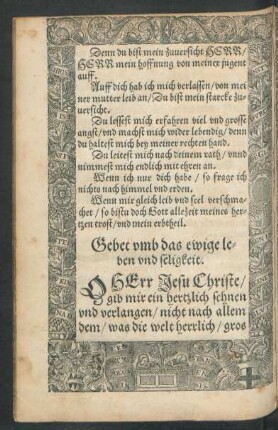 Denn du bist mein zuuersicht HERR/
HERR mein hoffnung von meiner jugent
auff.
Auff dich hab ich mich verlassen/von mei
ner mutter leib an/Du bist mein starcke zu-
uersicht.
Du lessest mich erfahren viel vnd grosse
angst/vnd machst mich wider lebendig/denn
du haltest mich bey meiner rechten hand.
Du leitest mich nach deinem rath/vnnd
nimmest mich endlich mit ehren an.
Wenn ich nur dich habe/so frage ich
nichts nach himmel vnd erden.
Wenn mir gleich leib vnd seel verschma-
chet/so bistu doch Gott allezeit meines her-
tzen trost/vnd mein erbtheil.
Gebet vmb das ewige le-
ben vnd seligkeit.
O HErr Jesu Christe/
gib mir ein hertzlich sehnen
vnd verlangen/nicht nach allem
dem/was die welt herrlich/gros